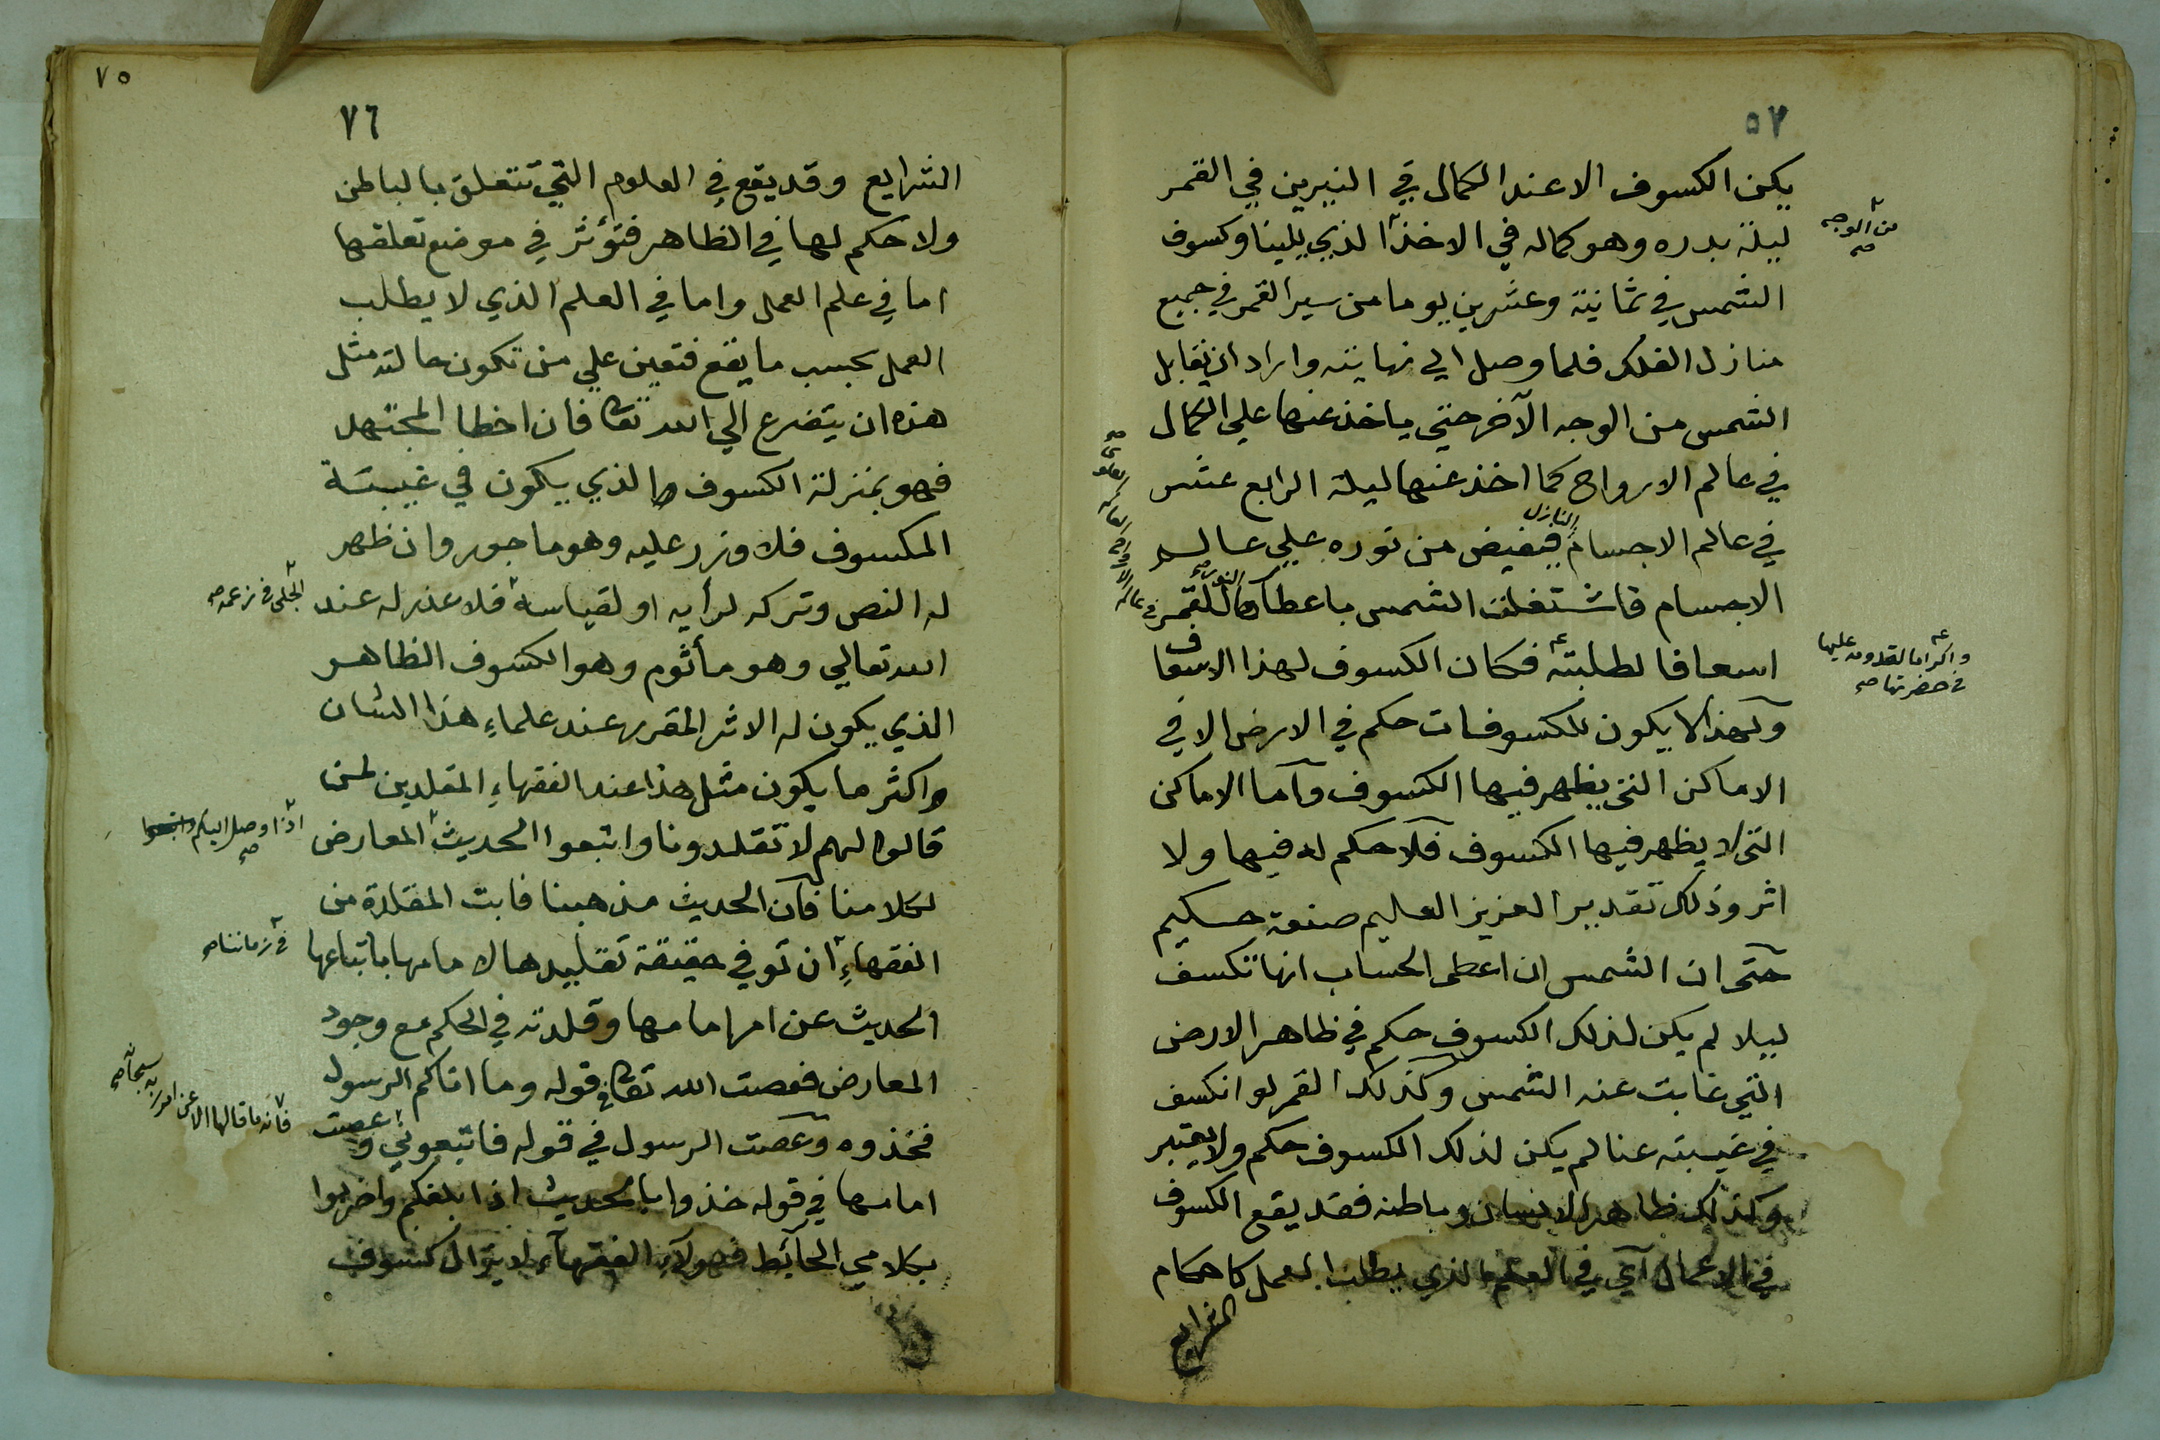 ٥٧
يكن الكسوف الا عند الكمال في النيرين في القمر
ليلة بدره وهو كماله في الاخذ الذي يلينا وكسوف
من الوجه صح
الشمس في ثمانية وعشرين يوما من سير القمر في جميع
منازل الفلك فلما وصل الي نهايته واراد ان يقابل
الشمس من الوجه الآخر حتي ياخذ عنها علي الكمال
في عالم الارواح كما اخذ عنها ليلة الرابع عشر
في عالم الاجسام النازل فيفيض من نوره علي عالم
الاجسام فاشتغلت الشمس باعطاء النور للقمر في
اسعافا لطلبته فكان الكسوف لهذا الاسعاف
واكراما لقدومه عليها
في حضرتها صح
ولهذا لا يكون للكسوفات حكم في الارض الا في
الاماكن التي يظهر فيها الكسوف واما الاماكن
التي لا يظهر فيها الكسوف فلا حكم له فيها ولا
اثر وذلك تقدير العزيز العليم صنعة حكيم
حتى ان الشمس ان اعطى الحساب انها تكسف
ليلا لم يكن لذلك الكسوف حكم في ظاهر الارض
التي غابت عنه الشمس وكذلك القمر لو انكسف
في غيبته عنا لم يكن لذلك الكسوف حكم ولا يعتبر
وكذلك ظاهر الانسان وباطنه فقد يقع الكسوف
في الاعمال آي في العلم الذي يطلب العمل كاحكام
الشرايع
٧٥
٧٦
الشرايع وقد يقع في العلوم التي تتعلق بالباطن
ولا حكم لها في الظاهر فتؤثر في موضع تعلقها
اما في علم العمل واما في العلم الذي لا يطلب
العمل بحسب ما يقع فتعين علي من تكون حالته مثل
هذه ان يتضرع الي الله تعا فان اخطا المجتهد
فهو بمنزلة الكسوف الذي يكون في غيبة
المكسوف فلا وزر عليه وهو ماجور وان ظهر
له النص وتركه لرأيه او لقياسه فلا عذر له عند
الجلي في زعمه صح
الله تعالي وهو مأثوم وهو الكسوف الظاهر
الذي يكون له الاثر المقرر عند علماء هذا الشان
واكثر ما يكون مثل هذا عند الفقهاء المقلدين لمن
قالوا لهم لا تقلدونا واتبعوا الحديث المعارض
اذا وصل اليكم صح
لكلامنا فان الحديث مذهبنا فابت المقلدة من
الفقهاء ان توفي حقيقة تقليدها لامامها باتباعها
في زماننا صح
الحديث عن امر امامها وقلدته في الحكم مع وجود
المعارض فعصت الله تعا في قوله وما اتاكم الرسول
فخذوه وعصت الرسول في قوله فاتبعوني وعصت
فانه ما قالها الا عن امر ربه سبحانه صح
امامها في قوله خذوا بالحديث اذا بلغكم واضربوا
بكلامي الحائط فهولاء الفقهاء لا يزال كسوف